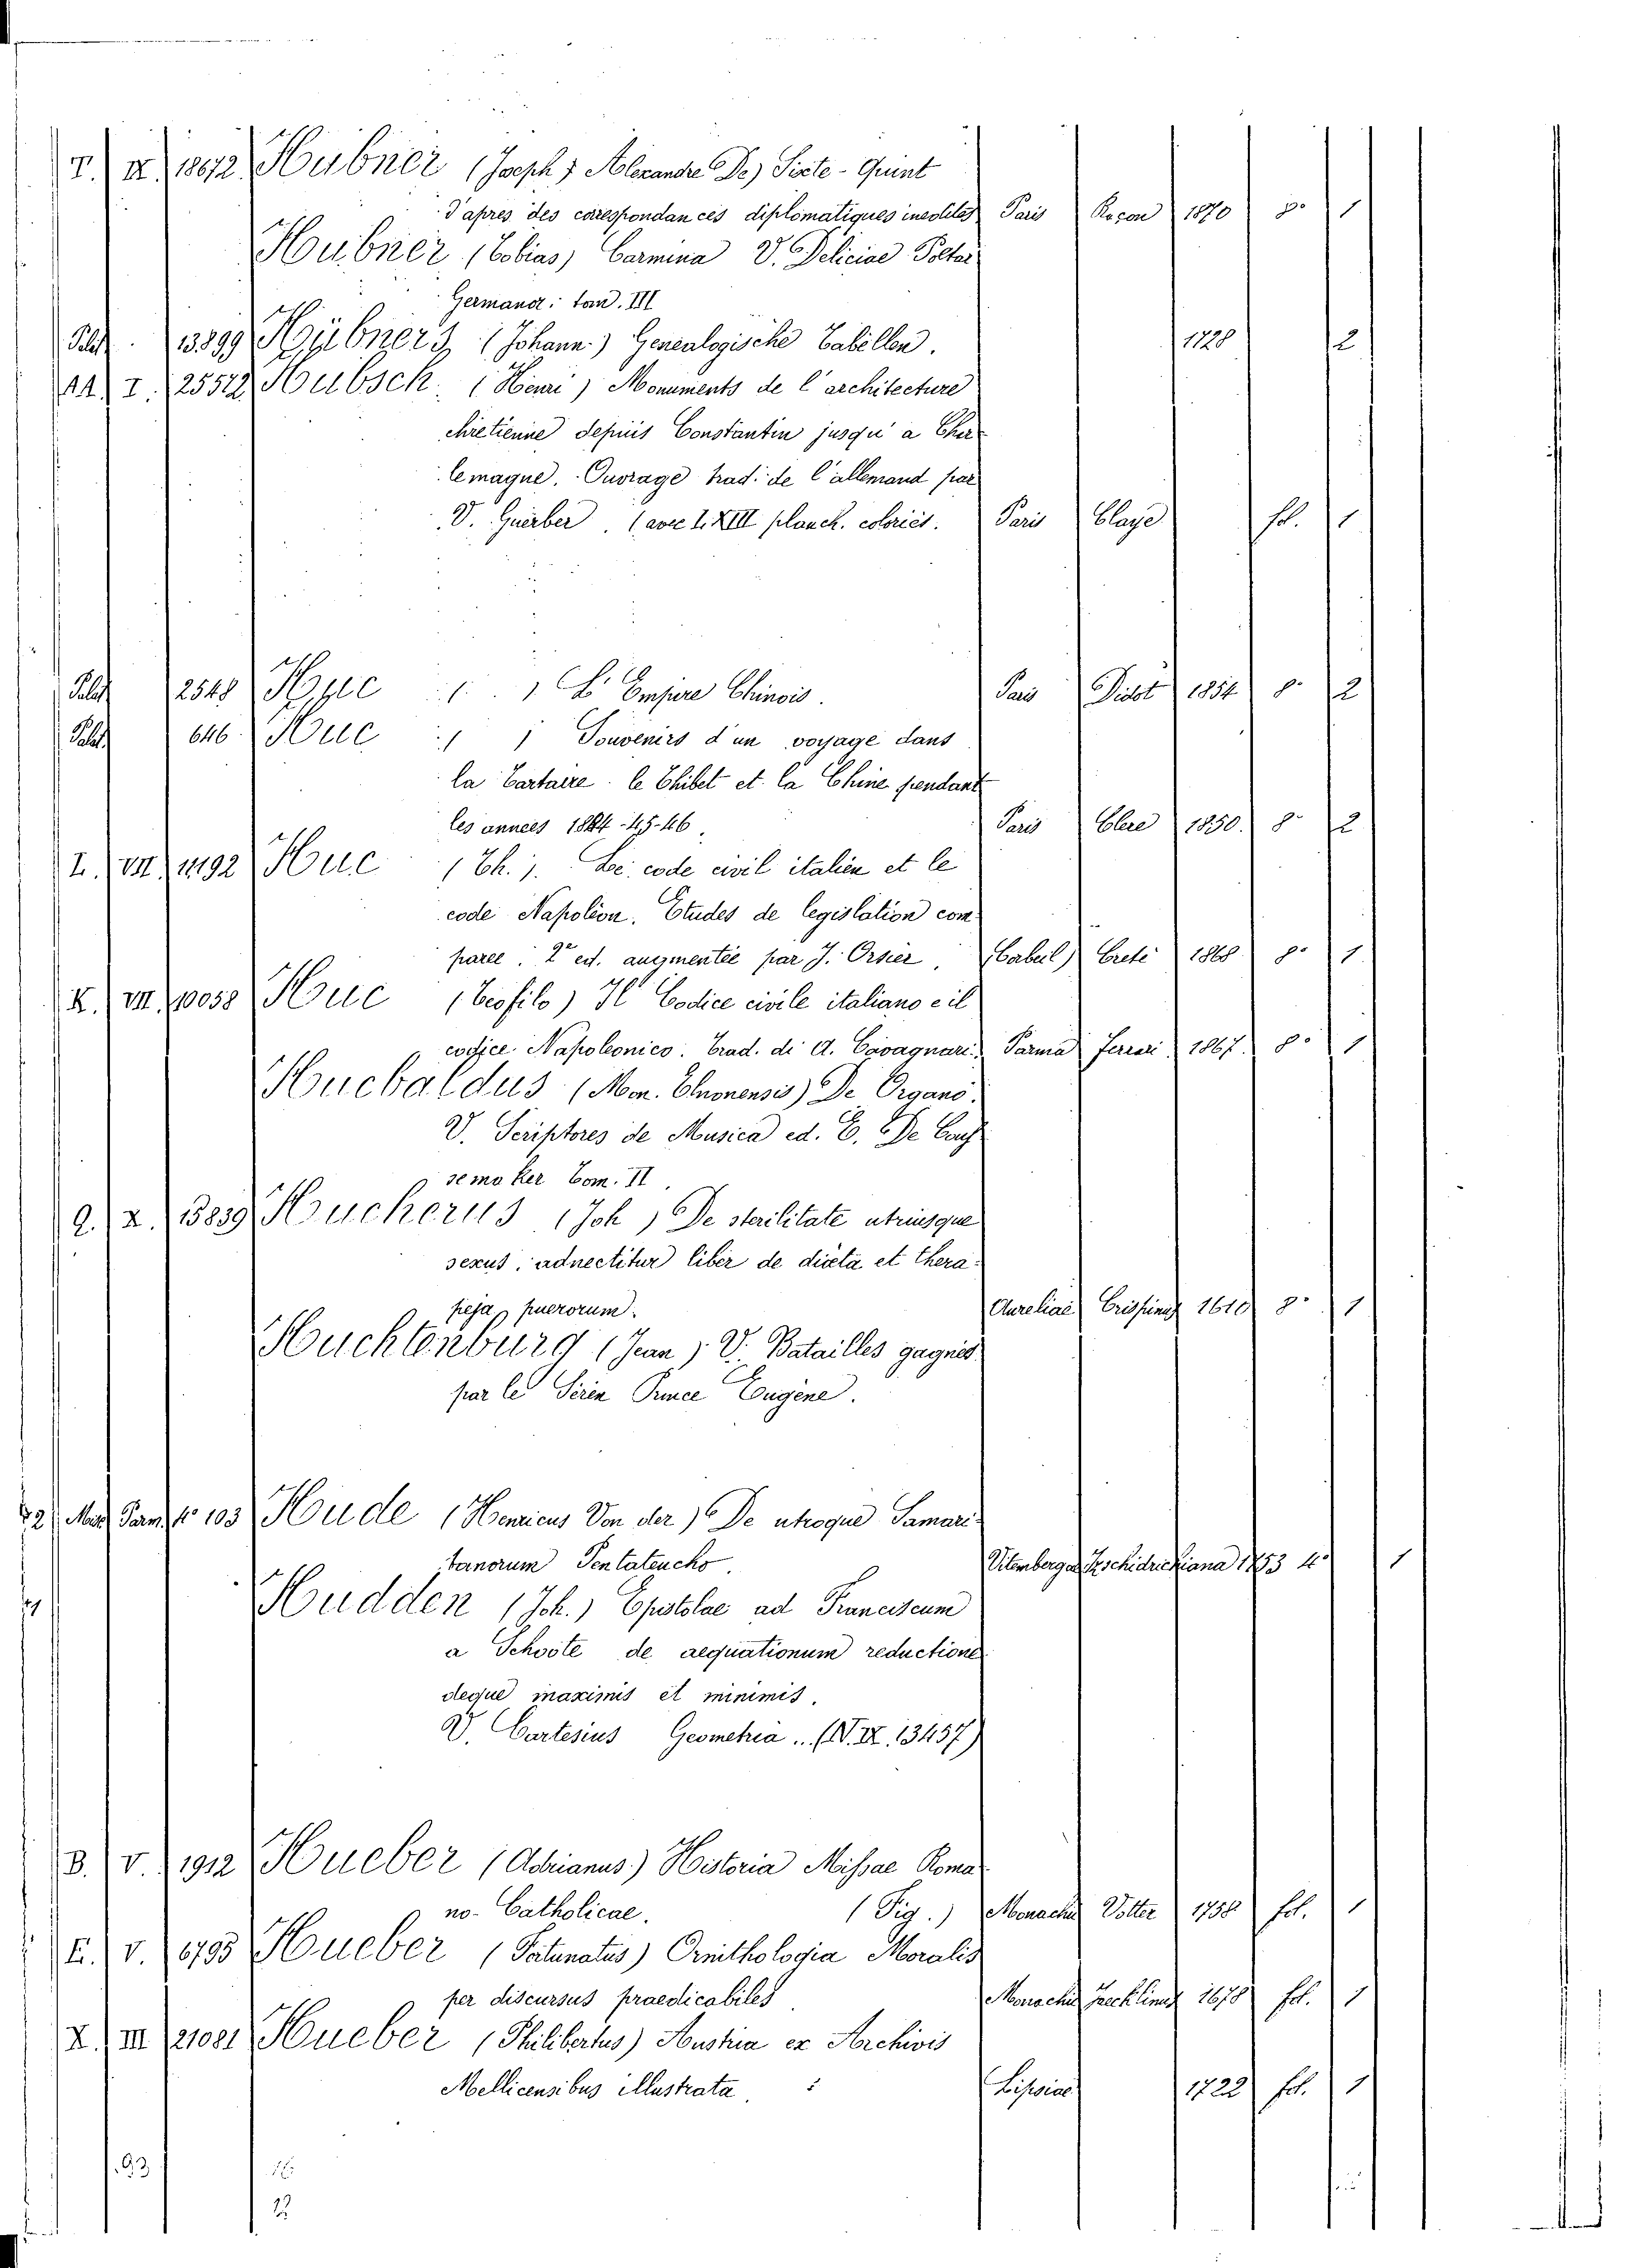 T. IX. 18672 Hubner (Joseph, Alexandre De) Sixte-Quint
d'apres des corespondances diplomatiques inedites Paris Raçon 1870 8° 1
Hubner (Tobias) Carmina V. Deliciae Poetar
Germanor. tom. III
Palat. 13899 Hübners (Johann) Genealogische Tabellen. 1728 2
AA I. 25512 Hubsch (Henri) Monuments de l'architecture
chretienne depuis Constantin jusqu'a Char
lemagne. Ouvrage trad. de l'allemand par
V. Guerber. (avec LXIII planch. coloriés. Paris Claye fol. 1
Palat 2548 Huc ( ) L'Empire Chinois. Paris Didot 1854 8° 2
Palat 646 Huc ( ) Souvenirs d'un voyage dans
la Tartarie le Thibet et la Chine pendant
les annees 1844-45-46. Paris Clere 1850. 8° 2
I. VII. 11192 Huc (Th.). Le code civil italien et le
code Napoléon. Etudes de legislation com
paree. 2e ed. augmentée par J. Orsier. Corbeil Creté 1868 8° 1
K. VII. 10058 Huc (Teofilo) Il Codice civile italiano e il
codice Napoleonico. Trad. di A. Cavagnari. Parma Ferrari 1867. 8° 1
Hucbaldus (Mon. Elnonensis) De Organo.
V. Scriptores de Musica ed. E. De Cous
semaker Tom. II.
Q. X. 13839 Huckerus (Joh) De sterilitate utriusque
sexus, adnectitur liber de diaeta et thera
peja puerorum. Aureliae Crispinus 1610 8° 1
Huchtenburg (Jean) V. Batailles gagnés
par le Seren Prince Eugène.
22 Misc Parm. 4° 103 Hude (Henricus Von der) De utroque Samari
tanorum Pentateucho. Vitembergae Tzschidrichiana 1753 4° 1
Hudden (Joh.) Epistolae ad Franciscum
a Schoote de aequationum reductione
deque maximis et minimis.
V. Cartesius Geometria.. (N. IX. 13457)
B. V. 1912 Hueber (Adrianus) Historia Missae Roma
no-Catholicae. (Fig.) Monachii Vötter 1758 fol. 1
E. V. 6795 Hueber (Fortunatus) Ornithologia Moralis
per discursus praedicabiles Monachii Jaecklinus 1678 fol. 1
X. III 21081 Hueber (Philibertus) Austria ex Archivis
Mellicensibus illustrata. Lipsiae 1722 fol. 1
93